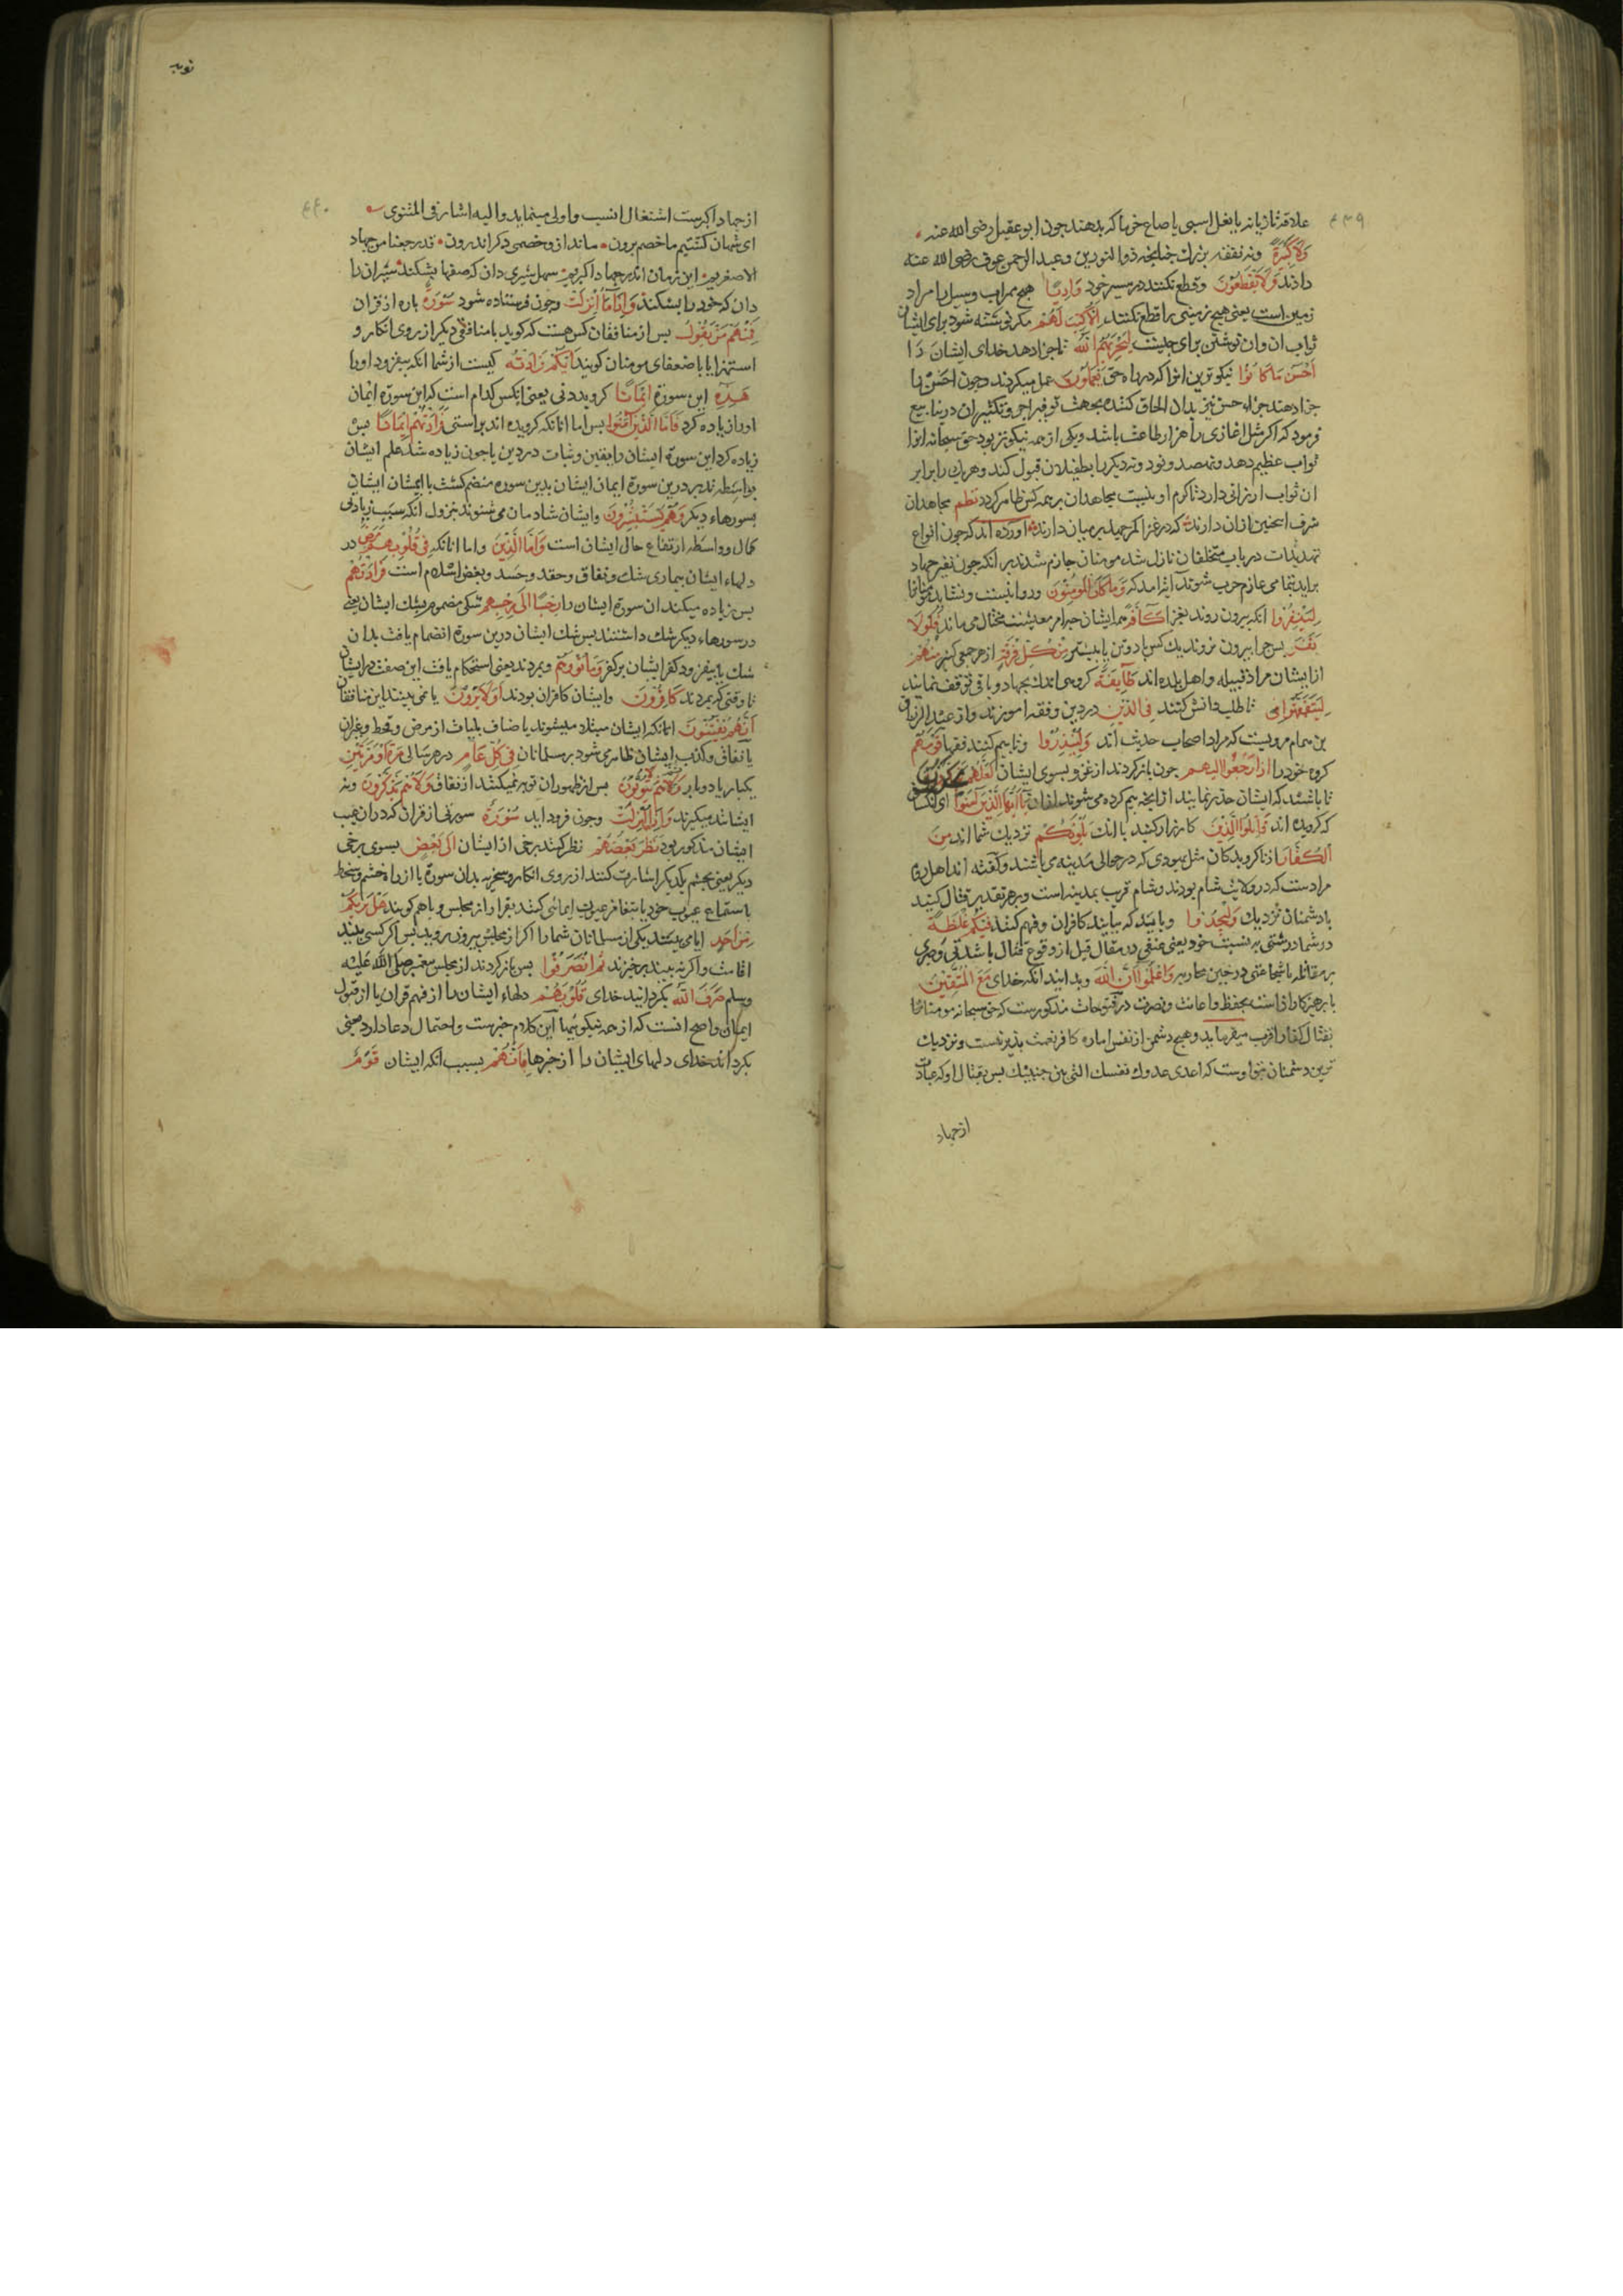 علاقه تازیانه یا نعل اسبی یا صاع خرما که بدهند جون ابو عقیل رضی الله عنه
وَلَا كَبِيرَةً ونه نفقه بزرك جنانجه ذو النورین وعبد الرحمن عوف رضی الله عنه
دادند وَلَا يَقْطَعُونَ وقطع نکنند در مسیر خود وَادِيًا هیج سراب وسیل یا مراد
زمین است یعنی هیج زمینی را قطع نکنند إِلَّا كُتِبَ لَهُمْ مکر نوشته شود برای ایشان
ثواب ان وان نوشتن برای جیست لِيَجْزِيَهُمُ اللَّهُ تا جزا دهد خدای ایشان را
أَحْسَنَ مَا كَانُوا نیکوترین انرا که در راه حق يَعْمَلُونَ عمل میکردند وجون احسن را
جزا دهند جزاء حسن نیز بدان الحاق کننده بجهت توفیر اجر وتکثیر ان
فرمود که اکر مثل اغازی را هزار طاعت باشد ویکی از همه نیکوتر بود حق سبحانه انرا
ثواب عظیم دهد ونهصد ونود ونه دیکر را بطفیل ان قبول کند وهر یك را برابر
ان ثواب ارزانی دارد تا کرم او بنسبت مجاهدان بر همه کس ظاهر کردد نظم مجاهدان
شرف اینجنین ازان دارند که در غزا کمر جهد بر میان دارند اورده اند که جون انواع
تهدیدات در باب متخلفان نازل شد مومنان جازم شدند بر انکه جون نفیر جهاد
براید بتمامی عازم حرب شوند ایة امد که وَمَا كَانَ الْمُؤْمِنُونَ وروا نیست ونشاید مومنانرا
لِيَنْفِرُوا انکه بیرون روند بغزا كَافَّةً همه ایشان جه امر معیشت مختل می ماند فَلَوْلَا
نَفَرَ بس جرا بیرون نروند یك کس یا دو تن یا بیشتر مِنْ كُلِّ فِرْقَةٍ از هر جمعی کثیر مِنْهُمْ
از ایشان مراد قبیله واهل بلده اند طَائِفَةٌ کروهی اندك بجهاد وباقی توقف نمایند
لِيَتَفَقَّهُوا تا طلب دانش کنند فِي الدِّينِ در دین وفقه اموزند واز عبد الرزاق
بن همام مرویست که مراد اصحاب حدیث اند وَلِيُنْذِرُوا وتا بیم کنند فقها قَوْمَهُمْ
کروه خود را إِذَا رَجَعُوا إِلَيْهِمْ جون باز کردند از غزو بسوی ایشان لَعَلَّهُمْ يَحْذَرُونَ
تا باشند که ایشان حذر نمایند از انجه بیم کرده می شوند ازان يَا أَيُّهَا الَّذِينَ آمَنُوا ای کسانی
که کرویده اند قَاتِلُوا الَّذِينَ کارزار کنید با انان يَلُونَكُمْ نزدیك شما اند مِنَ
الْكُفَّارِ از ناکرویدکان مثل یهودی که در حوالی مدینه می باشند وکفته اند اهل روم
مراد ست که در ولایت شام بودند وشام قریب بمدینه است وبر هر تقدیر قتال کنید
با دشمنان نزدیك وَلْيَجِدُوا وباید که بیابند کافران وفهم کنند فِيكُمْ غِلْظَةً
در شما درشتی بر نسبت خود یعنی عنفی در مقال قبل از وقوع قتال با شدتی وصبری
بر مقاتله یا شجاعتی در حین محاربه وَاعْلَمُوا أَنَّ اللَّهَ وبدانید انکه خدای مَعَ الْمُتَّقِينَ
با برهیزکاران است بحفظ واعانت ونصرت در فتوحات مذکورست که حق سبحانه مومنانرا
بقتال کفار اقرب میفرماید وهیج دشمن از نفس اماره کافر نعمت بذیر نیست ونزدیك
ترین دشمنان بتو اوست که اعدی عدوك نفسك التی بین جنبیك بس بقتال او که عبارت
از جهاد
توبه
از جهاد اکبرست اشتغال انسب واولی مینماید والیه اشار فی المثنوی
ای شهان کشتیم ما خصم برون ماند ازو خصمی دکر اندرون قد رجعنا من جهاد
الاصغریم این زمان اندر جهاد اکبریم سهل شیری دان که صفها بشکند شیر ان را
دان که خود را بشکند وَإِذَا مَا أُنْزِلَتْ وجون فرستاده شود سُورَةٌ باره از قران
فَمِنْهُمْ مَنْ يَقُولُ بس از منافقان کس هست که کوید با منافقی دیکر از روی انکار و
استهزا یا با ضعفای مومنان کویند أَيُّكُمْ زَادَتْهُ کیست از شما انکه بیفزود او را
هَذِهِ این سورة إِيمَانًا کرویدنی یعنی انکس کدام است که این سورة ایمان
او را زیاده کرد فَأَمَّا الَّذِينَ آمَنُوا بس اما انانکه کرویده اند براستی فَزَادَتْهُمْ إِيمَانًا بس
زیاده کرد این سورة ایشان را یقین وثبات در دین یا جون زیاده شد علم ایشان
بواسطه تدبر درین سورة ایمان ایشان بدین سوره منضم کشت با ایمان ایشان
بسورهاء دیکر وَهُمْ يَسْتَبْشِرُونَ وایشان شادمان می شوند بنزول انکه سبب زیادتی
کمال وواسطه ارتفاع حال ایشان است وَأَمَّا الَّذِينَ واما انانکه فِي قُلُوبِهِمْ مَرَضٌ در
دلهاء ایشان بیماری شك ونفاق وحقد وحسد وبغض اسلام است فَزَادَتْهُمْ
بس زیاده میکند ان سورة ایشان را رِجْسًا إِلَى رِجْسِهِمْ شکی مضموم بشك ایشان یعنی
در سورهاء دیکر شك داشتند بس شك ایشان درین سورة انضمام یافت بدان
شك یا بیفزود کفر ایشان بر کفر وَمَاتُوا وبمردند یعنی استحکام یافت این صفت در ایشان
تا وقتی که بمردند كَافِرُونَ وایشان کافران بودند أَوَلَا يَرَوْنَ یا نمی بینند این منافقان
أَنَّهُمْ يُفْتَنُونَ انانکه ایشان مبتلا میشوند باصناف بلیات از مرض وقحط وغیران
یا نفاق وکذب ایشان ظاهر می شود بر مسلمانان فِي كُلِّ عَامٍ در هر سالی مَرَّةً أَوْ مَرَّتَيْنِ
یکبار یا دوبار ثُمَّ لَا يَتُوبُونَ بس از ظهور ان توبه نمیکنند از نفاق وَلَا هُمْ يَذَّكَّرُونَ ونه
ایشان بند میکیرند وَإِذَا مَا أُنْزِلَتْ وجون فرود اید سُورَةٌ سورتی از قران که دران عیب
ایشان مذکور بود نَظَرَ بَعْضُهُمْ نظر کنند برخی از ایشان إِلَى بَعْضٍ بسوی برخی
دیکر یعنی بجشم یکدیکر اشارت کنند از روی انکار وسخریه بدان سورة یا از راه خشم وسخط
باستماع عیوب خود یا بتغامز عیون ایمائی کنند بفرار از مجلس وباهم کویند هَلْ يَرَاكُمْ
مِنْ أَحَدٍ ایا می بیند یکی از مسلمانان شما را اکر از مجلس بیرون روید بس اکر کسی بیند
اقامت واکر نه بیند برخیزند ثُمَّ انْصَرَفُوا بس باز کردند از مجلس بیغمبر صلی الله علیه
وسلم صَرَفَ اللَّهُ بکرداند خدای قُلُوبَهُمْ دلهاء ایشان را از فهم قران یا از قبول
ایمان واصح انست که از جه نیکوییها این کلام خبرست واحتمال دعا دارد یعنی
بکرداند خدای دلهای ایشان را از خیرها بِأَنَّهُمْ بسبب انکه ایشان قَوْمٌ